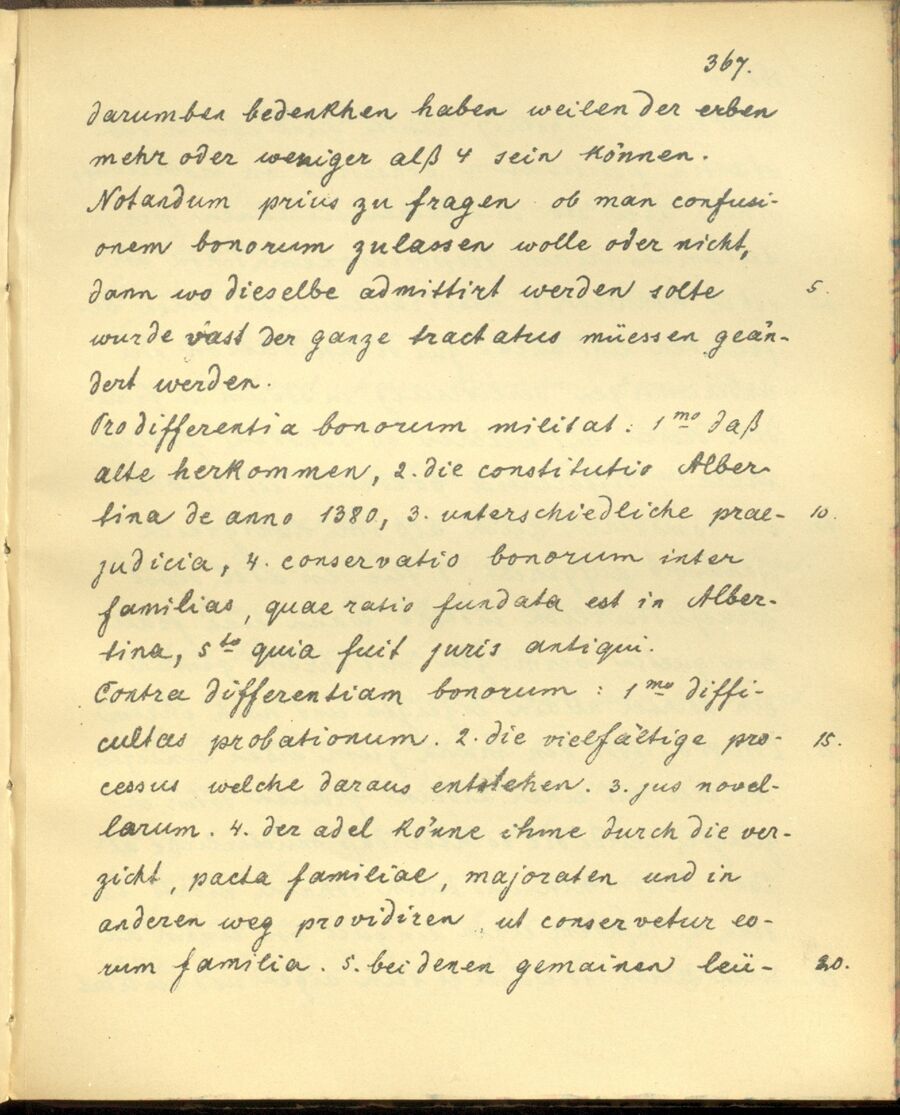 367.
darumben bedenkhen haben weilen der erben
mehr oder weniger alß 4 sein können.
Notandum prius zu fragen ob man confusi-
onem bonorum zulassen wolle oder nicht,
dann wo dieselbe admittirt werden solte 5.
wurde vast der ganze tractatus müessen geän-
dert werden.
Pro differentia bonorum militat: 1mo daß
alte herkommen, 2. die constitutio Alber-
tina de anno 1380, 3. unterschiedliche prae- 10.
judicia, 4. conservatio bonorum inter
familias, quae ratio fundata est in Alber-
tina, 5to quia fuit juris antiqui.
Contra differentiam bonorum: 1mo diffi-
cultas probationum. 2. die vielfältige pro- 15.
cessus welche daraus entstehen. 3. jus novel-
larum. 4. der adel könne ihme durch die ver-
zicht, pacta familiae, majoraten und in
anderen weg providiren, ut conservetur eo-
rum familia. 5. bei denen gemainen leü- 20.